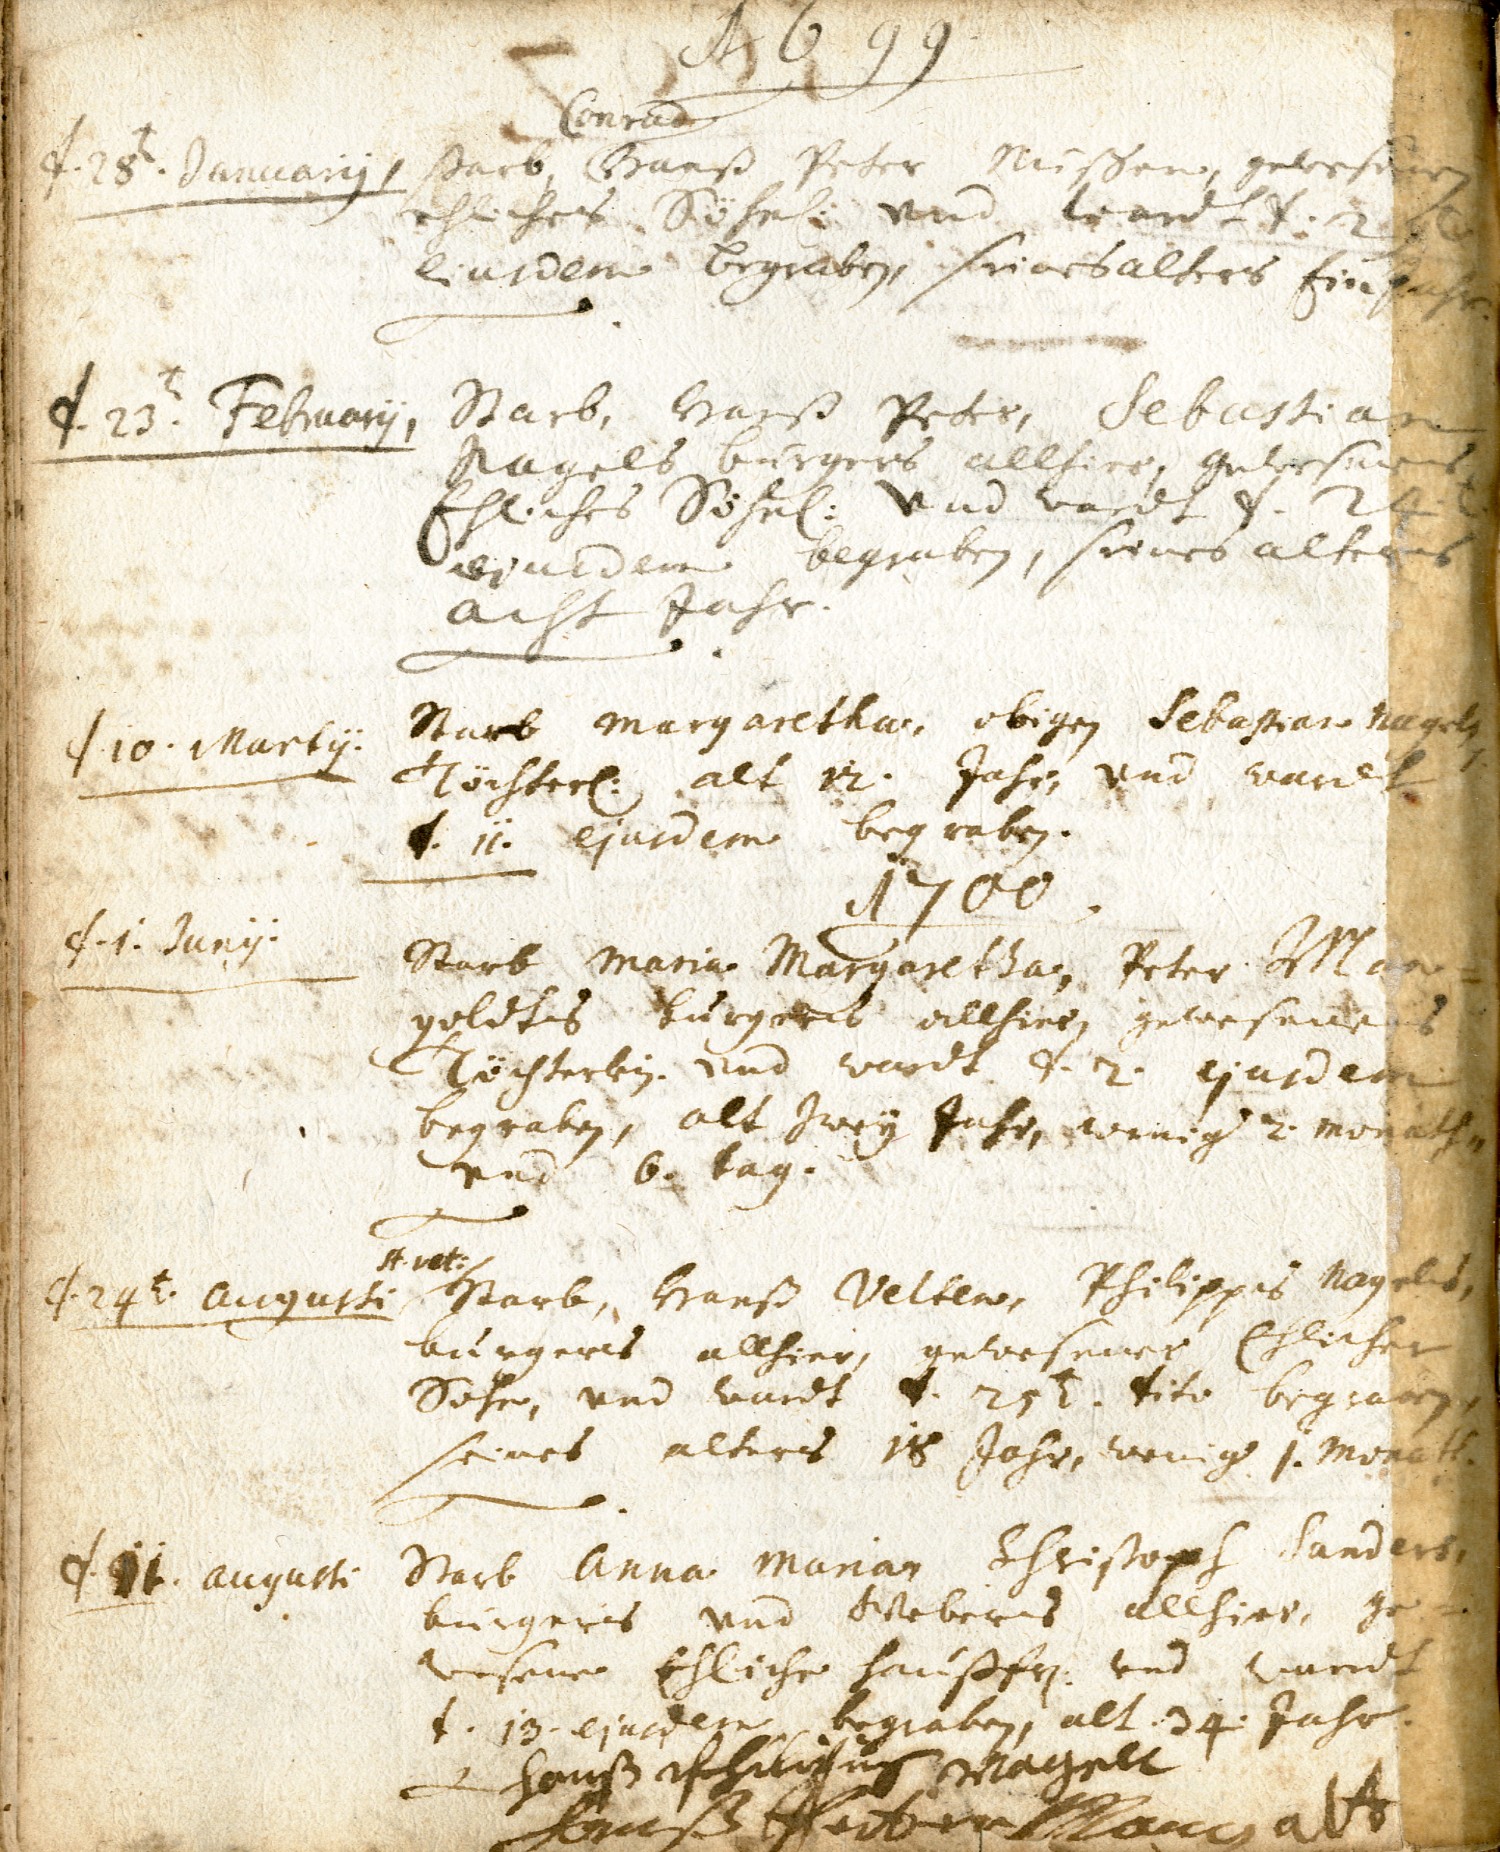 1699
Conrad
d. 28t. Januarij, starb, Hanß Peter
ehliches Söhnl: und wardt d. 2
ejusdem begraben, seines alters Ein Jahr.
d. 23t. Februarij, Starb, Hanß Peter, Sebastian
Nagels burgers allhier, gewesenes
Ehliches Söhnl: Und wardt d. 24t.
ejusdem begraben, seines alters
acht Jahr.
d. 10. Martij. Starb Margaretha, obigen Sebastian Nagels
Töchterl: alt 12. Jahr, und wardt
d. 11. ejusdem begraben.
1700.
d. 1. Junij. Starb Maria Margaretha, Peter Man=
goldts burgers allhier, gewesenes
Töchterlein. und wardt d. 2. ejusdem
begraben, alt Zwey Jahr, wenig 2. monath,
und 6. tag.
st. vet:
d. 24t. Augusti Starb, Hanß Velten, Philipps Nagels,
burgers allhier, gewesener Ehlicher
Sohn, und wardt d. 25t. dito begraben,
seines alters 18 Jahr, wenig 1. Monath.
d. 11. Augusti Starb Anna Maria, Christoph Sanders,
burgers und Webers allhier, ge=
wesene Ehliche haußfr. und wardt
d. 13. ejusdem begraben, alt 34. Jahr.
Hanß Philipus Nagell
Hanß Peter Mangolts